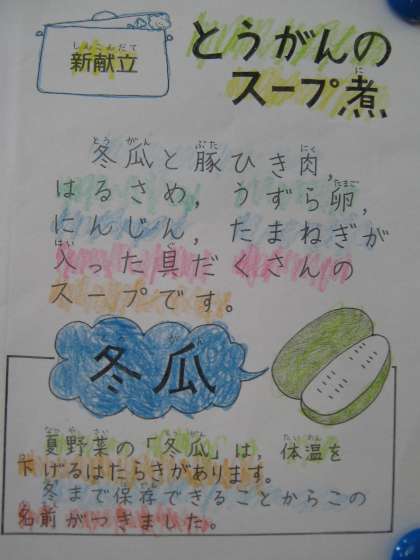 新献立
とうがんの
スープ煮
冬瓜と豚ひき肉,
はるさめ, うずら卵,
にんじん, たまねぎが
入った具だくさんの
スープです。
冬瓜
夏野菜の「冬瓜」は, 体温を
下げるはたらきがあります。
冬まで保存できることからこの
名前がつきました。